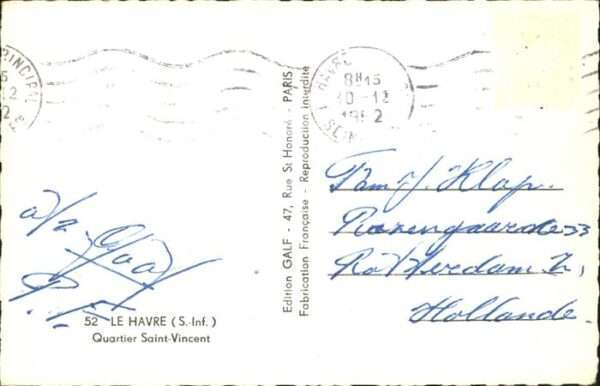 PRINCIPAL
LE HAVRE
8H15
10-12
SEINE
a/z
52 LE HAVRE (S.-Inf.)
Quartier Saint-Vincent
Edition GALF - 47, Rue St Honoré - PARIS
Fabrication Française - Reproduction interdite
Fam. J. Klop.
Rozengaarde 33
Rotterdam Z,
Hollande.